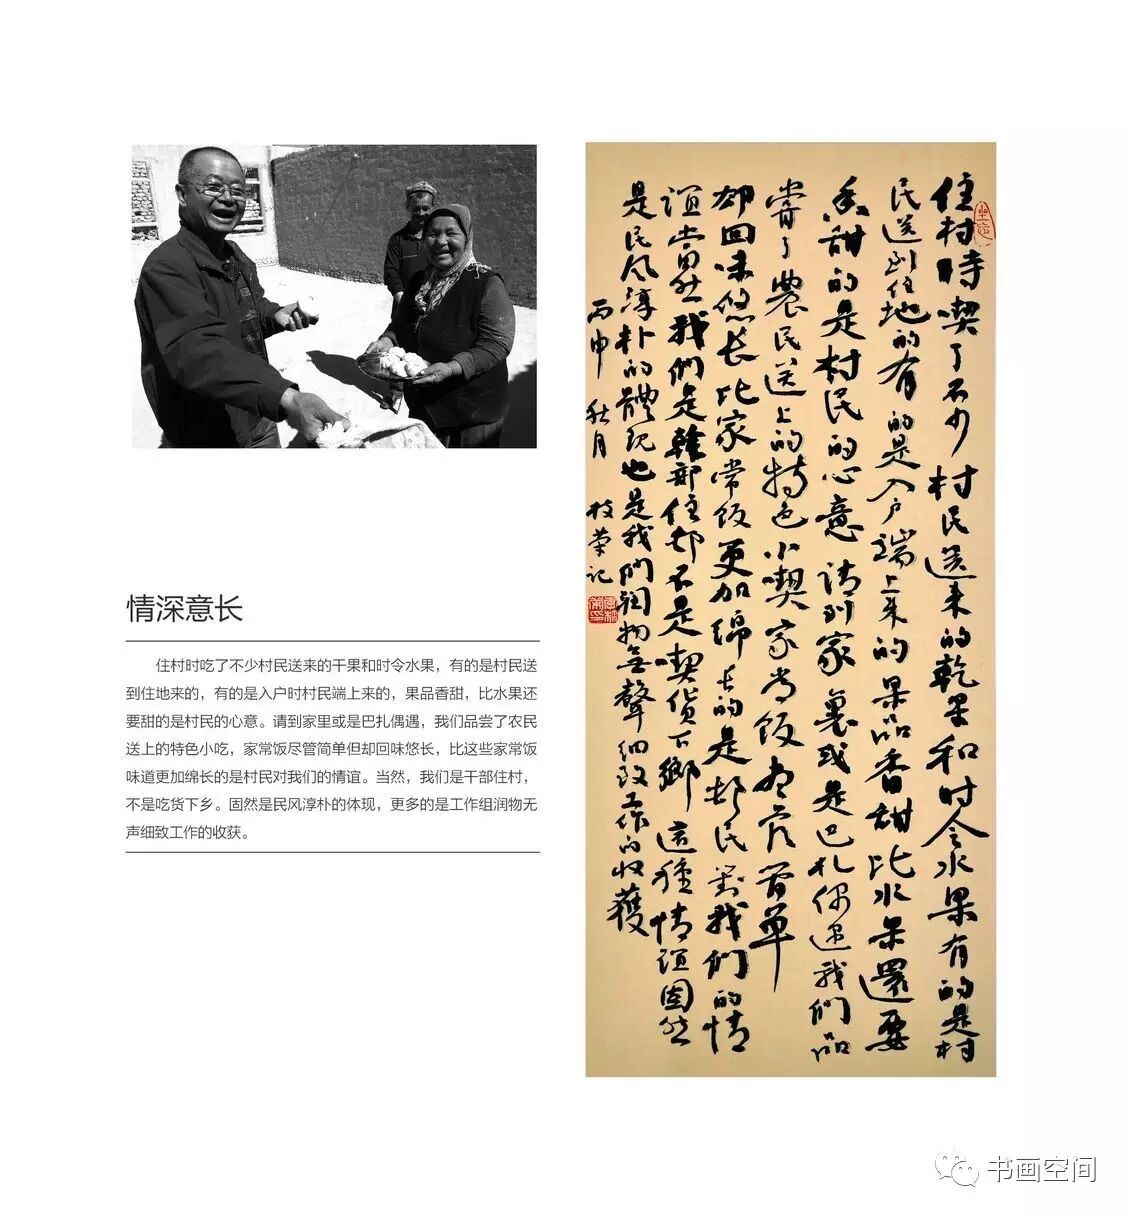 情深意长
住村时吃了不少村民送来的干果和时令水果，有的是村民送
到住地来的，有的是入户时村民端上来的，果品香甜，比水果还
要甜的是村民的心意。请到家里或是巴扎偶遇，我们品尝了农民
送上的特色小吃，家常饭尽管简单但却回味悠长，比这些家常饭
味道更加绵长的是村民对我们的情谊。当然，我们是干部住村，
不是吃货下乡。固然是民风淳朴的体现，更多的是工作组润物无
声细致工作的收获。
住村時喫了不少村民送来的乾果和时令水果有的是村
民送到住地的有的是入户端上来的果品香甜比水果還要
甜的是村民的心意请到家裏或是巴扎偶遇我们品
嘗了農民送上的特色小喫家常饭尽管简单
却回味悠长比家常饭更加绵长的是邨民對我们的情
谊当然我们是幹部住邨不是喫货下鄉這種情谊固然
是民风淳朴的體现也是我们润物無聲细致工作的收獲
丙申秋月 枝荣记
书画空间